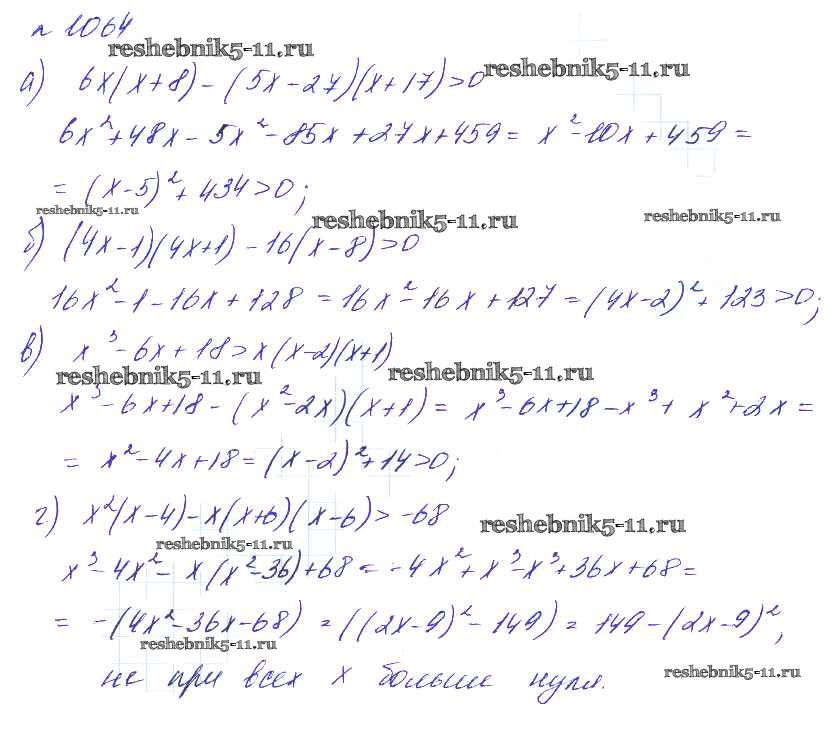 п 1064
reshebnik5-11.ru
а) 6x(x+8) - (5x-27)(x+17)>0
reshebnik5-11.ru
6x²+48x-5x²-85x+27x+459 = x²-10x+459 =
= (x-5)²+434>0;
reshebnik5-11.ru
reshebnik5-11.ru
reshebnik5-11.ru
б) (4x-1)(4x+1) - 16(x-8)>0
16x²-1-16x+128 = 16x²-16x+127 = (4x-2)²+123>0;
в) x³-6x+18>x(x-2)(x+1)
reshebnik5-11.ru
reshebnik5-11.ru
x³-6x+18-(x²-2x)(x+1) = x³-6x+18-x³+x²+2x =
= x²-4x+18 = (x-2)²+14>0;
г) x²(x-4)-x(x+6)(x-6)>-68
reshebnik5-11.ru
reshebnik5-11.ru
x³-4x²-x(x²-36)+68 = -4x²+x³-x³+36x+68 =
= -(4x²-36x-68) = ((2x-9)²-149) = 149-(2x-9)²,
reshebnik5-11.ru
не при всех x больше нуля.
reshebnik5-11.ru